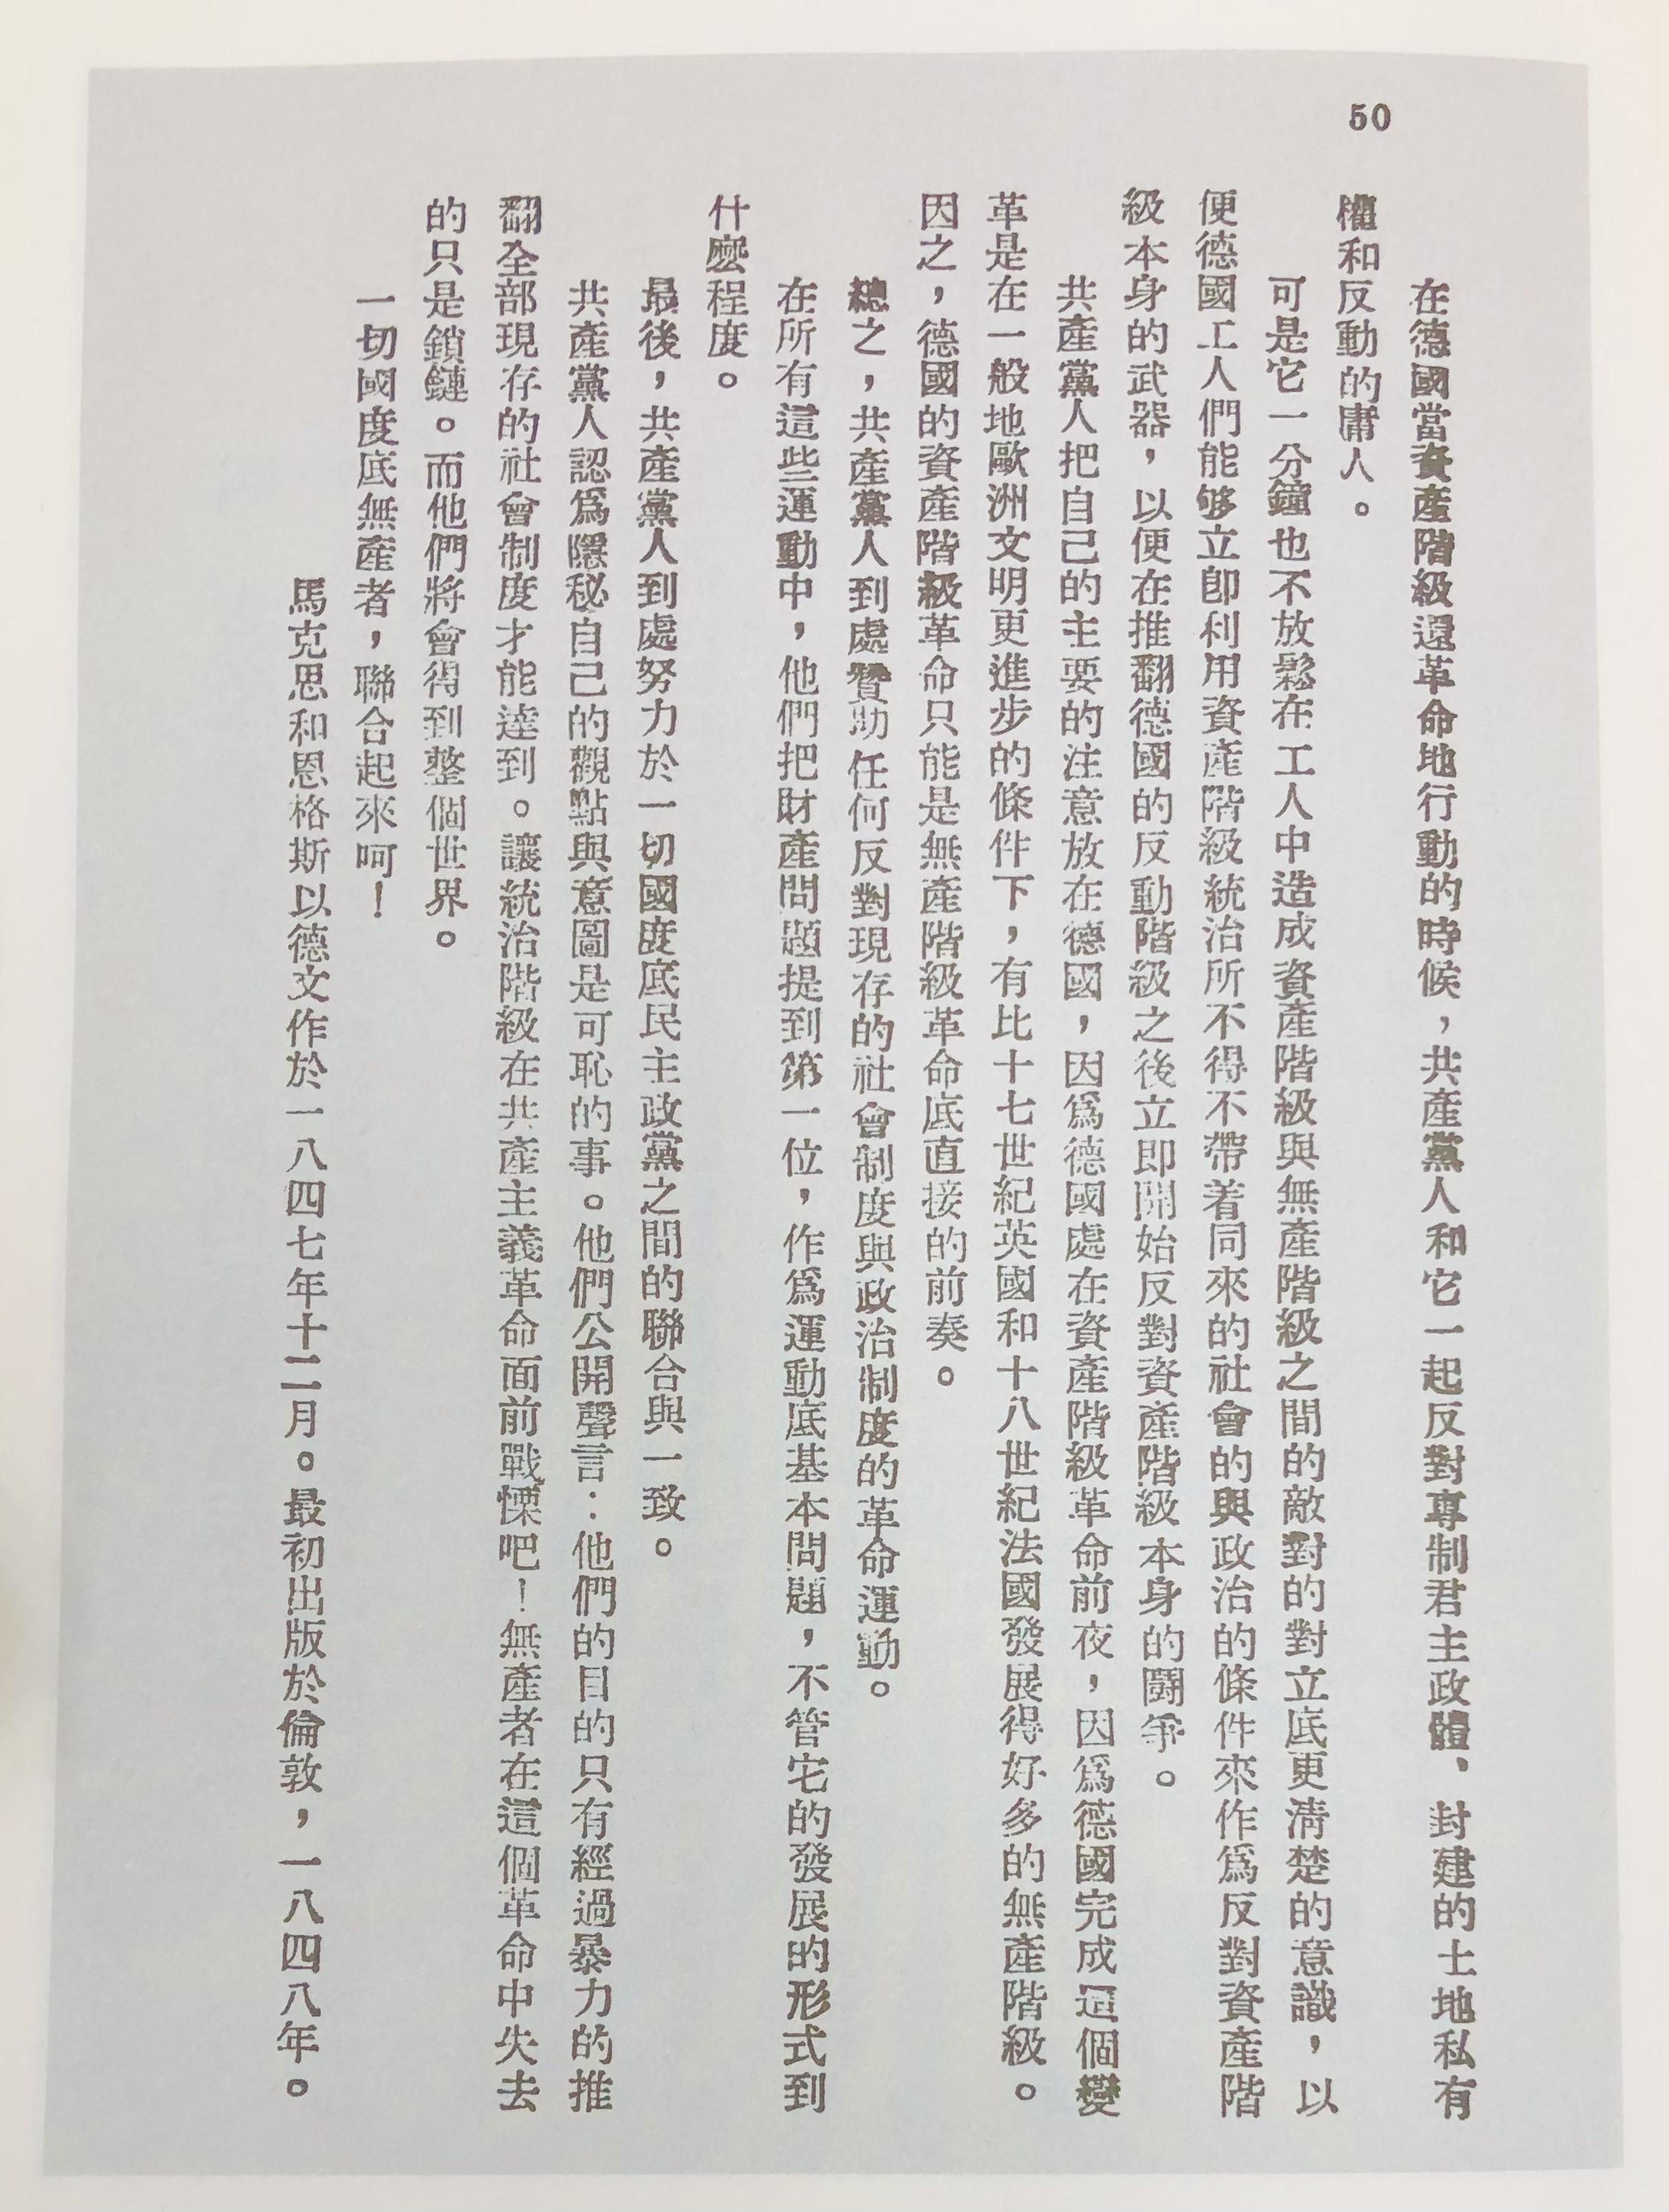 50
在德國當資產階級還革命地行動的時候，共產黨人和它一起反對專制君主政體、封建的土地私有
權和反動的庸人。
可是它一分鐘也不放鬆在工人中造成資產階級與無產階級之間的敵對的對立底更清楚的意識，以
便德國工人們能够立卽利用資產階級統治所不得不帶着同來的社會的與政治的條件來作爲反對資產階
級本身的武器，以便在推翻德國的反動階級之後立卽開始反對資產階級本身的鬭爭。
共產黨人把自己的主要的注意放在德國，因爲德國處在資產階級革命前夜，因爲德國完成這個變
革是在一般地歐洲文明更進步的條件下，有比十七世紀英國和十八世紀法國發展得好多的無產階級。
因之，德國的資產階級革命只能是無產階級革命底直接的前奏。
總之，共產黨人到處贊助任何反對現存的社會制度與政治制度的革命運動。
在所有這些運動中，他們把財產問題提到第一位，作爲運動底基本問題，不管它的發展的形式到
什麽程度。
最後，共產黨人到處努力於一切國度底民主政黨之間的聯合與一致。
共產黨人認爲隱秘自己的觀點與意圖是可恥的事。他們公開聲言：他們的目的只有經過暴力的推
翻全部現存的社會制度才能達到。讓統治階級在共產主義革命面前戰慄吧！無產者在這個革命中失去
的只是鎖鏈。而他們將會得到整個世界。
一切國度底無產者，聯合起來呵！
馬克思和恩格斯以德文作於一八四七年十二月。最初出版於倫敦，一八四八年。